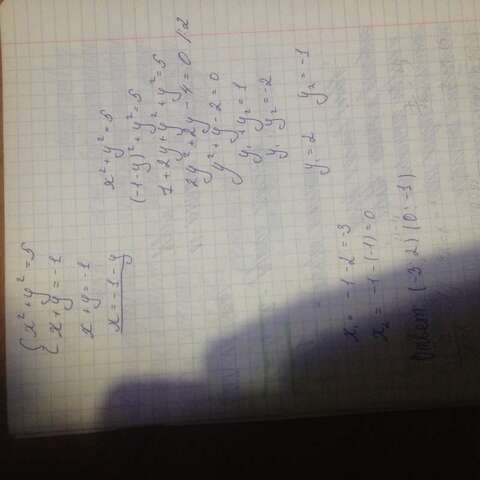 { x² + y² = 5
x + y = -1
x + y = -1
x = -1 - y
x² + y² = 5
(-1-y)² + y² = 5
1 + 2y + y² + y² = 5
2y² + 2y - 4 = 0 /:2
y² + y - 2 = 0
y₁ + y₂ = 1
y₁ y₂ = -2
y₁ = 2 y₂ = -1
x₁ = -1 - 2 = -3
x₂ = -1 - (-1) = 0
Ответ: (-3; 2) (0; -1)